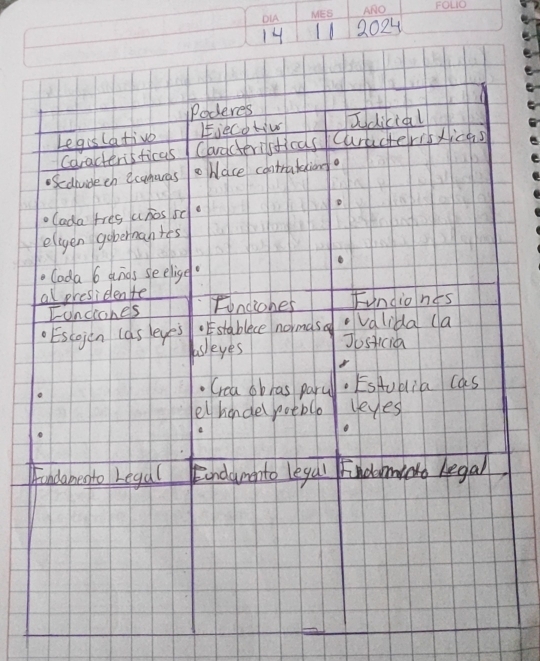 DIA MES AÑO FOLIO
14 11 2024
Poderes
Legislativo Ejecotivo Judicial
Caracteristicas Caracteristicas Caracteristicas
•Sedivide en 2 camaras
• Hace
•Cada tres años se
eligen gobernantes
• Cada 6 años se elige
al presidente
Funciones Funciones Funciones
• Escojen las leyes
• Establece normas a
las leyes
• Crea obras para
el del pueblo
• Valida la
Justicia
• Estudia las
leyes
Fundamento Legal Fundamento legal Fundamento Legal